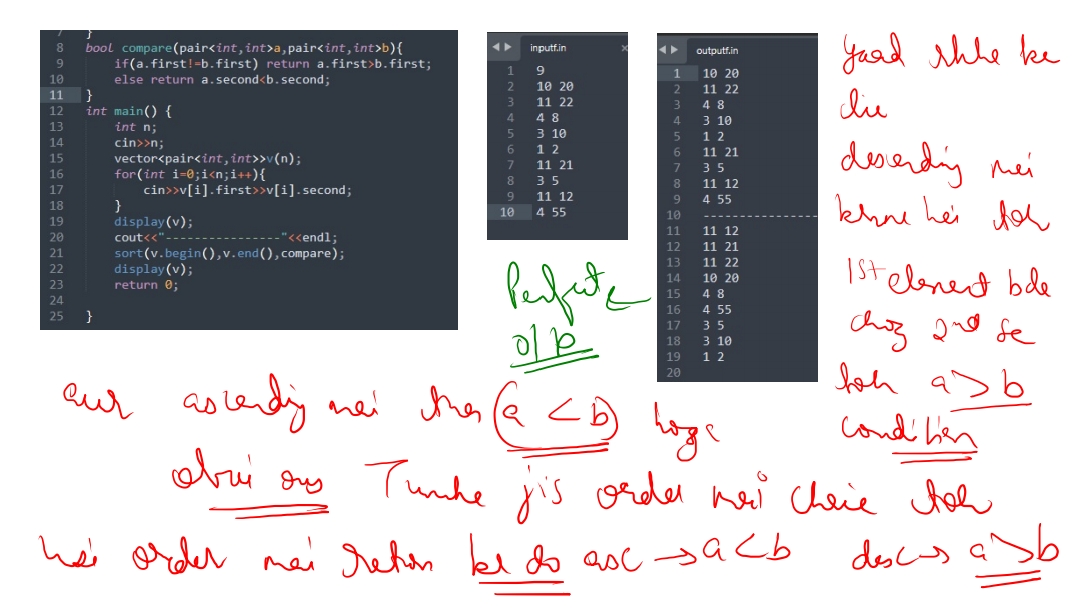 7 }
8 bool compare(pair<int,int>a,pair<int,int>b){
9 if(a.first!=b.first) return a.first>b.first;
10 else return a.second<b.second;
11 }
12 int main() {
13 int n;
14 cin>>n;
15 vector<pair<int,int>>v(n);
16 for(int i=0;i<n;i++){
17 cin>>v[i].first>>v[i].second;
18 }
19 display(v);
20 cout<<"----------------"<<endl;
21 sort(v.begin(),v.end(),compare);
22 display(v);
23 return 0;
24
25 }
inputf.in ×
1 9
2 10 20
3 11 22
4 4 8
5 3 10
6 1 2
7 11 21
8 3 5
9 11 12
10 4 55
outputf.in
1 10 20
2 11 22
3 4 8
4 3 10
5 1 2
6 11 21
7 3 5
8 11 12
9 4 55
10 ----------------
11 11 12
12 11 21
13 11 22
14 10 20
15 4 8
16 4 55
17 3 5
18 3 10
19 1 2
20
o/p
yaad rkhne ke
lie
descending mei
krne hei toh
1st element bda
2nd se
toh a>b
condition
aur ascending mei (a < b) hoga
obvious Tumhe jis order mei cheie toh
usi order mei return kr do asc → a<b desc → a>b